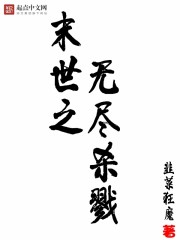 起点中文网
末世之
无尽杀戮
韭菜狂魔
著